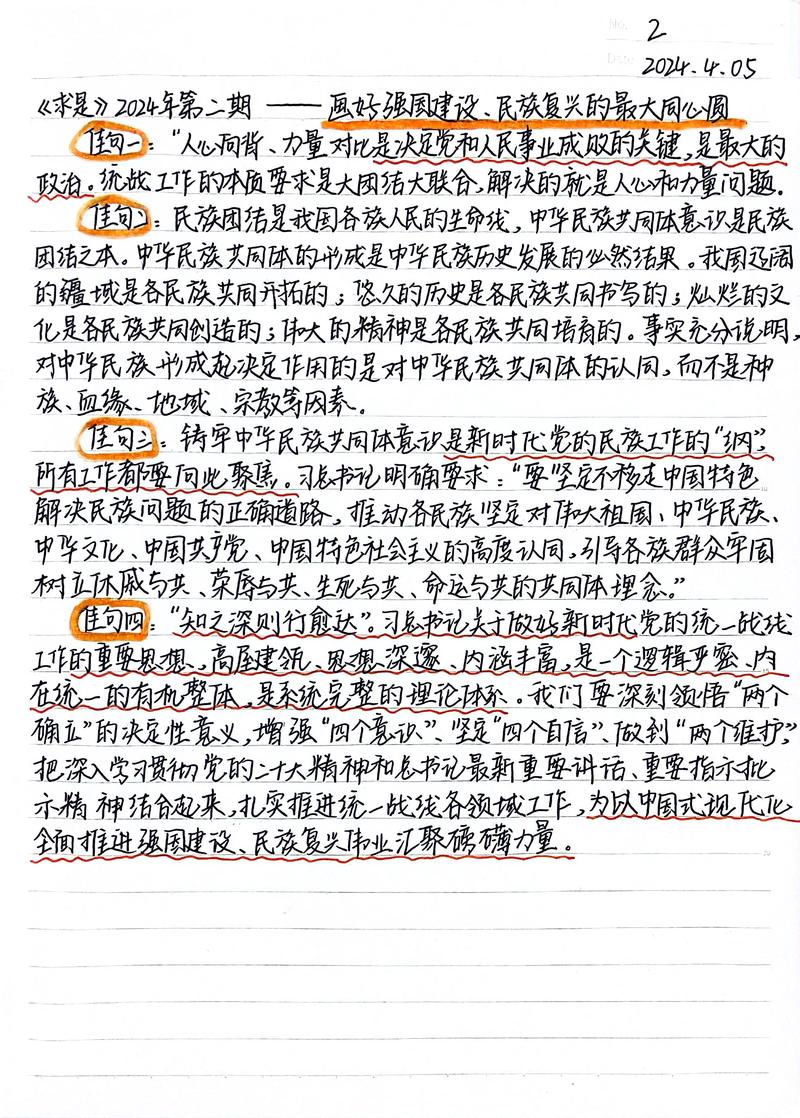 No. 2
Date 2024.4.05
《求是》2024年第二期 —— 画好强国建设、民族复兴的最大同心圆
佳句一：“人心向背、力量对比是决定党和人民事业成败的关键，是最大的
政治。统战工作的本质要求是大团结大联合，解决的就是人心和力量问题.
佳句二：民族团结是我国各族人民的生命线，中华民族共同体意识是民族
团结之本。中华民族共同体的形成是中华民族历史发展的必然结果。我国辽阔
的疆域是各民族共同开拓的；悠久的历史是各民族共同书写的；灿烂的文
化是各民族共同创造的；伟大的精神是各民族共同培育的。事实充分说明，
对中华民族形成起决定作用的是对中华民族共同体的认同，而不是种
族、血缘、地域、宗教等因素。
佳句三：铸牢中华民族共同体意识是新时代党的民族工作的“纲”，
所有工作都要向此聚焦。习总书记明确要求：“要坚定不移走中国特色
解决民族问题的正确道路，推动各民族坚定对伟大祖国、中华民族、
中华文化、中国共产党、中国特色社会主义的高度认同，引导各族群众牢固
树立休戚与共、荣辱与共、生死与共、命运与共的共同体理念。”
佳句四：“知之深则行愈达”。习总书记关于做好新时代党的统一战线
工作的重要思想，高屋建瓴、思想深邃、内涵丰富，是一个逻辑严密、内
在统一的有机整体，是系统完整的理论体系。我们要深刻领悟“两个
确立”的决定性意义，增强“四个意识”、坚定“四个自信”、做到“两个维护”，
把深入学习贯彻党的二十大精神和总书记最新重要讲话、重要指示批
示精神结合起来，扎实推进统一战线各领域工作，为以中国式现代化
全面推进强国建设、民族复兴伟业汇聚磅礴力量。